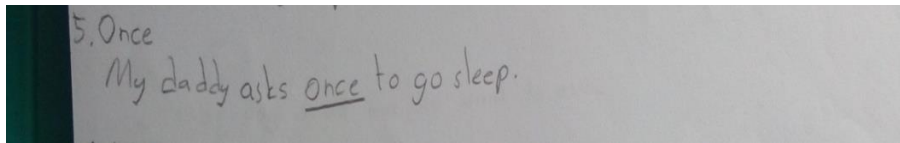 5. Once
My daddy asks once to go sleep.